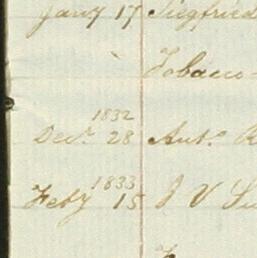 Jany 17 Siegfried
Tobacco
1832
Decr. 28 Ant.
1833
Feby 15 J V